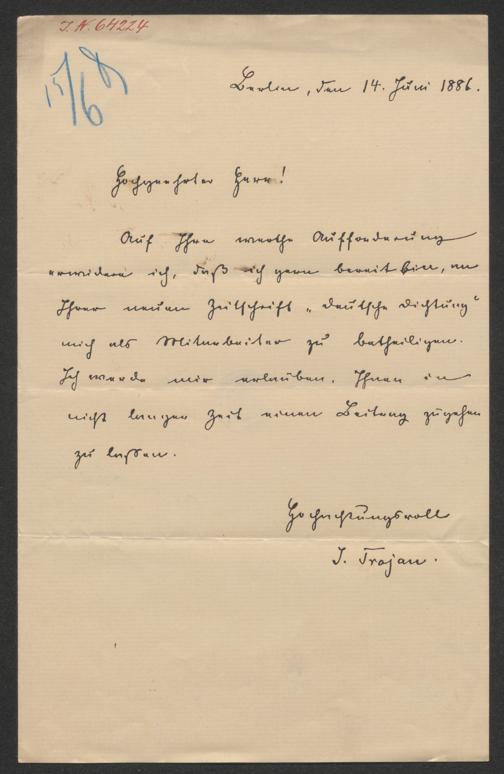 I.N. 64224
15/6 8
Berlin, den 14. Juni 1886.
Hochgeehrter Herr!
Auf Ihre werthe Aufforderung
erwidere ich, daß ich gern bereit bin, an
Ihrer neuen Zeitschrift „deutsche Dichtung“
mich als Mitarbeiter zu betheiligen.
Ich werde mir erlauben, Ihnen in
nicht langer Zeit einen Beitrag zugehen
zu lassen.
Hochachtungsvoll
J. Trojan.